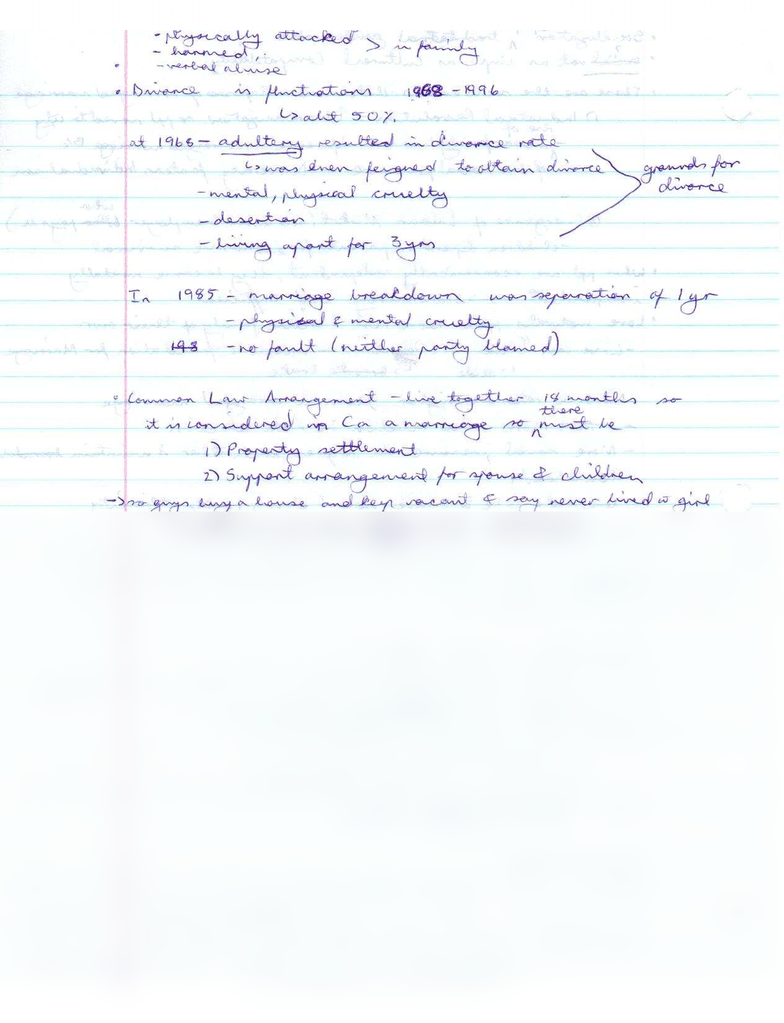 - physically attacked > in family
- harmed,
- verbal abuse
• Divorce is fluctuations 1968 - 1996
↳ abt 50%
at 1968 - adultery resulted in divorce rate
↳ was even feigned to obtain divorce
grounds for divorce
- mental, physical cruelty
- desertion
- living apart for 3 yrs
In 1985 - marriage breakdown was separation of 1 yr
- physical & mental cruelty
198 - no fault (neither party blamed)
• Common Law Arrangement - live together 18 months so
it is considered in Ca a marriage so there must be
1) Property settlement
2) Support arrangement for spouse & children
→ so guys buy a house and keep vacant & say never lived w girl